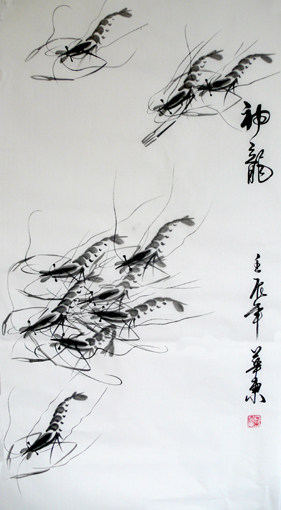 神龍
壬辰年
華東